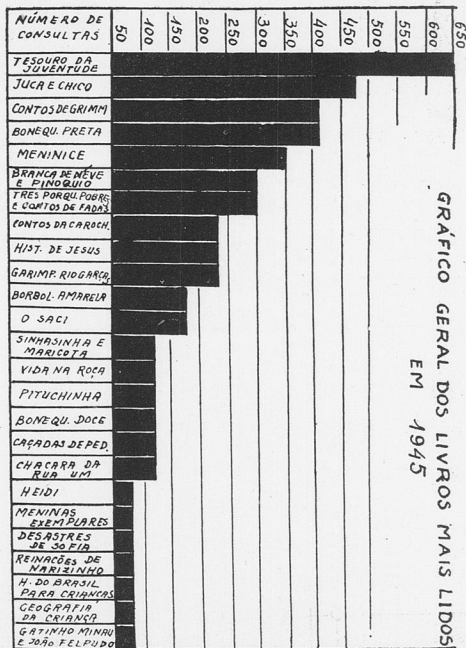 NÚMERO DE
CONSULTAS
50
100
150
200
250
300
350
400
450
500
550
600
650
TESOURO DA
JUVENTUDE
JUCA E CHICO
CONTOS DE GRIMM
BONEQU. PRETA
MENINICE
BRANCA DE NEVE
E PINOQUIO
TRES PORQU. POBRE
E CONTOS DE FADAS
CONTOS DA CAROCH.
HIST. DE JESUS
GARIMP. RIO GARÇAS
BORBOL. AMARELA
O SACI
SINHASINHA E
MARICOTA
VIDA NA ROÇA
PITUCHINHA
BONEQU. DOCE
CAÇADAS DE PED.
CHACARA DA
RUA UM
HEIDI
MENINAS
EXEMPLARES
DESASTRES
DE SOFIA
REINACÕES DE
NARIZINHO
H. DO BRASIL
PARA CRIANÇAS
GEOGRAFIA
DA CRIANÇA
GATINHO MINAU
E JOÃO FELPUDO
GRÁFICO GERAL DOS LIVROS MAIS LIDOS
EM 1945